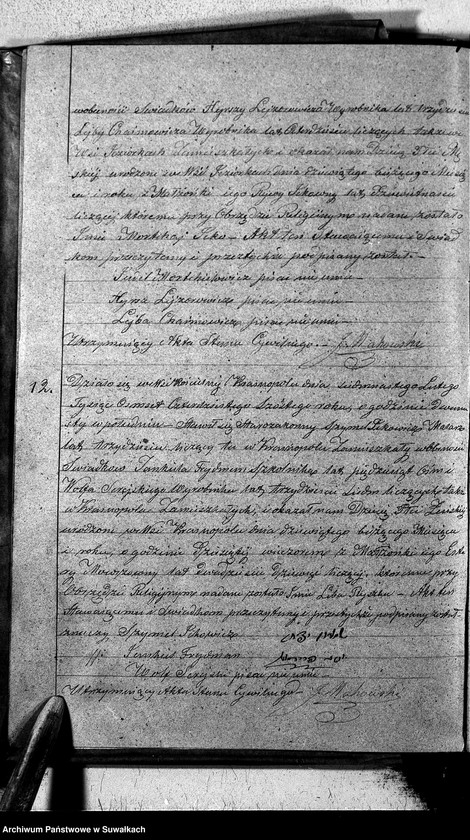 wobecność Swiadków Heyszy Leyzorowicza Wyrobnika lat trzydzieści
Leyby Chaimowicza Wyrobnika lat Czterdzieści liczących, także w
Wsi Jeziorkach Zamieszkałych i okazał nam Dziecię Płci Mę-
skiej urodzone w Wsi Jeziorkach dnia dziewiątego bieżącego Miesią-
ca i roku z Małżonki jego lat Dziewietnaście
liczącej któremu przy Obrzędzie Religijnym nadane zostało
Imie Mortchaj Akt ten Stawaiącemu i Swiad-
kom przeczytany i przez tychże podpisany został.
Mortchelowicz pisać nie umie
Heysza Leyzorowicz pisać nie umie
Leyba Chaimowicz pisać nie umie
Utrzymuiący Akta Stanu Cywilnego. J. Makowski
12. Działo się w Mieście Krasnopolu dnia siedmnastego Lutego
Tysiąc Ośmset Czterdziestego Szóstego roku, o godzinie Dwuna-
stey w południe. Stawił się Starozakonny Szymel
lat trzydzieści liczący tu w Krasnopolu Zamieszkały w obecności
Swiadków Jankiela Frydman Szkolnika lat pięćdziesiąt Ośm i
Wolfa Serejskiego Wyrobnika lat trzydzieści siedm liczących także
w Krasnopolu Zamieszkałych, i okazał nam Dziecię Płci Żeńskiej
urodzone w Mieście Krasnopolu dnia dziewiątego bieżącego Miesiąca
i roku, o godzinie dziesiątej wieczorem z Małżonki jego
Mowszowny lat dwadzieścia dziewięć liczącej, któremu przy
Obrzędzie Religijnym nadane zostało Imie Liba Akt ten
Stawaiącemu i Swiadkom przeczytany, i przez tychże podpisany został.
Szymel
Jankiel Frydman
Wolf Serejski pisać nie umie
Utrzymuiący Akta Stanu Cywilnego J. Makowski
Archiwum Państwowe w Suwałkach